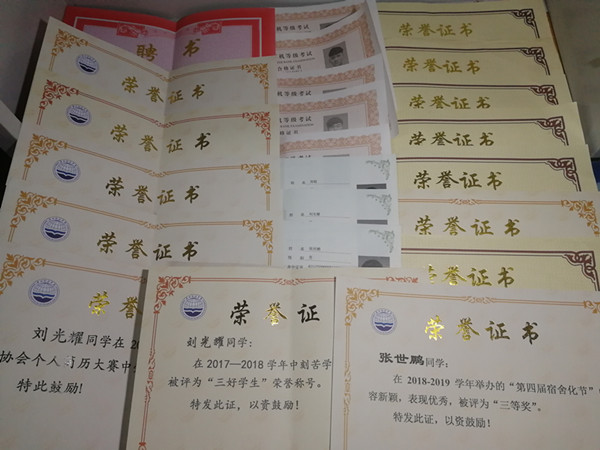 聘书
荣誉证书
荣誉证书
荣誉证书
荣誉证书
机等级考试
合格证书
机等级考试
机等级考试
机等级考试
荣誉证书
荣誉证书
荣誉证书
荣誉证书
荣誉证书
荣誉证书
荣誉证书
荣
刘光耀同学在20
协会个人简历大赛中
特此鼓励!
荣誉证
刘光耀同学:
在2017—2018学年中刻苦学
被评为“三好学生”荣誉称号。
特发此证,以资鼓励!
荣誉证书
张世鹏同学:
在2018-2019学年举办的“第四届宿舍化节”
容新颖,表现优秀,被评为“三等奖”。
特发此证,以资鼓励!